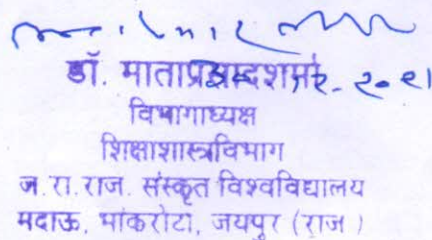 डॉ. माताप्रसादशर्मा
विभागाध्यक्ष
शिक्षाशास्त्रविभाग
ज. रा. राज. संस्कृत विश्वविद्यालय
मदाऊ, भांकरोटा, जयपुर (राज)